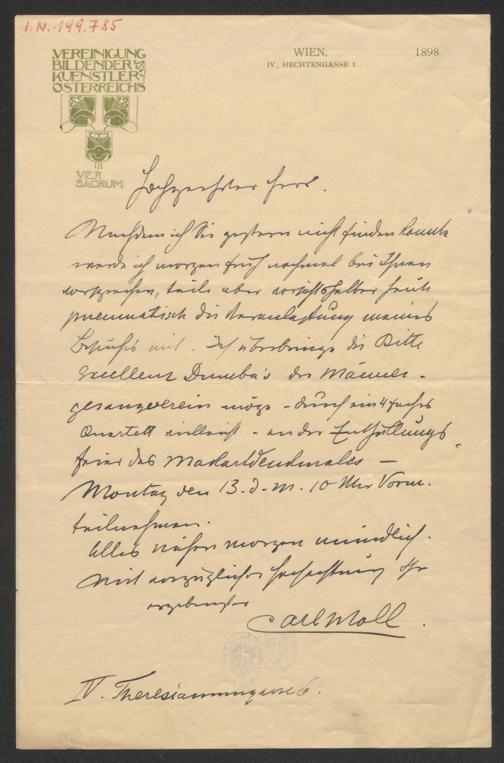 I.N. 199.785
VEREINIGUNG
BILDENDER
KUENSTLER
ÖSTERREICHS
VER
SACRUM
WIEN, 1898
IV., HECHTENGASSE 1.
Hochgeehrter Herr.
Nachdem ich Sie gestern nicht finden konnte
werde ich morgen früh nochmal bei Ihnen
vorsprechen, teile aber vorsichtshalber heute
pneumatisch die Veranlassung meines
Besuches mit. Ich überbringe die Bitte
Excellenz Dumba's der Männer-
gesangverein möge - durch ein 4faches
Quartett vielleicht - an der Enthüllungs
feier des Makartdenkmales -
Montag den 13. d. M. 10 Uhr Vorm.
teilnehmen.
Alles nähere morgen mündlich.
Mit vorzüglicher Hochachtung Ihr
ergebenster
Carl Moll.
IV. Theresianumgasse 6.